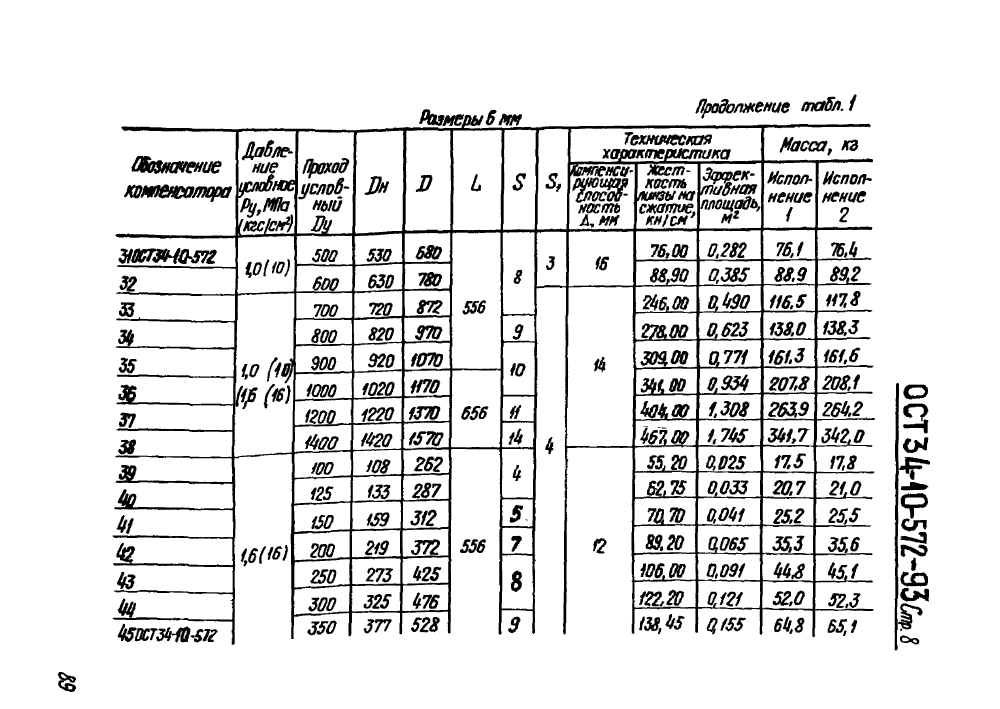 Продолжение табл. 1
Размеры в мм
Обозначение компенсатора | Давление условное Ру, МПа (кгс/см²) | Проход условный Ду | Dн | D | L | S | S₁ | Техническая характеристика | Масса, кг
Компенсирующая способность Δ, мм | Жесткость линзы на сжатие, кн/см | Эффективная площадь, м² | Исполнение 1 | Исполнение 2
31ОСТ34-10-572 | 1,0 (10) | 500 | 530 | 680 | 556 | 8 | 3 | 16 | 76,00 | 0,282 | 76,1 | 76,4
32 | 600 | 630 | 780 | 88,90 | 0,385 | 88.9 | 89,2
33 | 1,0 (10) (1,6 (16) | 700 | 720 | 872 | 4 | 14 | 246,00 | 0,490 | 116,5 | 117,8
34 | 800 | 820 | 970 | 9 | 278,00 | 0,623 | 138,0 | 138,3
35 | 900 | 920 | 1070 | 10 | 309,00 | 0,771 | 161,3 | 161,6
36 | 1000 | 1020 | 1170 | 656 | 341,00 | 0,934 | 207,8 | 208,1
37 | 1200 | 1220 | 1370 | 11 | 404,00 | 1,308 | 263,9 | 264,2
38 | 1400 | 1420 | 1570 | 14 | 467,00 | 1,745 | 341,7 | 342,0
39 | 1,6 (16) | 100 | 108 | 262 | 556 | 4 | 12 | 55,20 | 0,025 | 17,5 | 17,8
40 | 125 | 133 | 287 | 62,75 | 0,033 | 20,7 | 21,0
41 | 150 | 159 | 312 | 5 | 70,70 | 0,041 | 25,2 | 25,5
42 | 200 | 219 | 372 | 7 | 89,20 | 0,065 | 35,3 | 35,6
43 | 250 | 273 | 425 | 8 | 106,00 | 0,091 | 44,8 | 45,1
44 | 300 | 325 | 476 | 122,20 | 0,121 | 52,0 | 52,3
45ОСТ34-10-572 | 350 | 377 | 528 | 9 | 138,45 | 0,155 | 64,8 | 65,1
ОСТ 34-10-572-93 Стр. 8
89